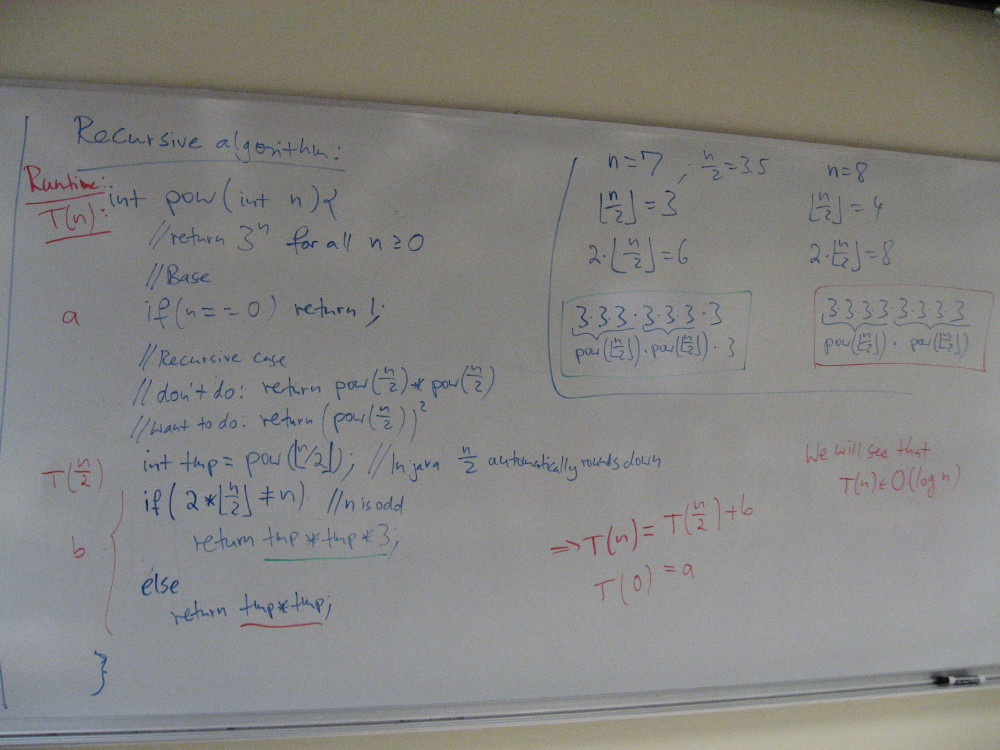 Recursive algorithm:
Runtime:
T(n):
int pow(int n){
//return 3ⁿ for all n ≥ 0
//Base
a
if(n == 0) return 1;
//Recursive case
//don't do: return pow(n/2)*pow(n/2)
//want to do: return (pow(n/2))²
T(n/2)
int tmp = pow(⌊n/2⌋); //In java n/2 automatically rounds down
if(2*⌊n/2⌋ ≠ n) //n is odd
b
return tmp*tmp*3;
else
return tmp*tmp;
}
n=7 ; n/2=3.5
⌊n/2⌋=3
2·⌊n/2⌋=6
3·3·3·3·3·3·3
pow(⌊n/2⌋)·pow(⌊n/2⌋)·3
n=8
⌊n/2⌋=4
2·⌊n/2⌋=8
3·3·3·3·3·3·3·3
pow(⌊n/2⌋)·pow(⌊n/2⌋)
We will see that
T(n)∈O(log n)
=> T(n)=T(n/2)+b
T(0)=a